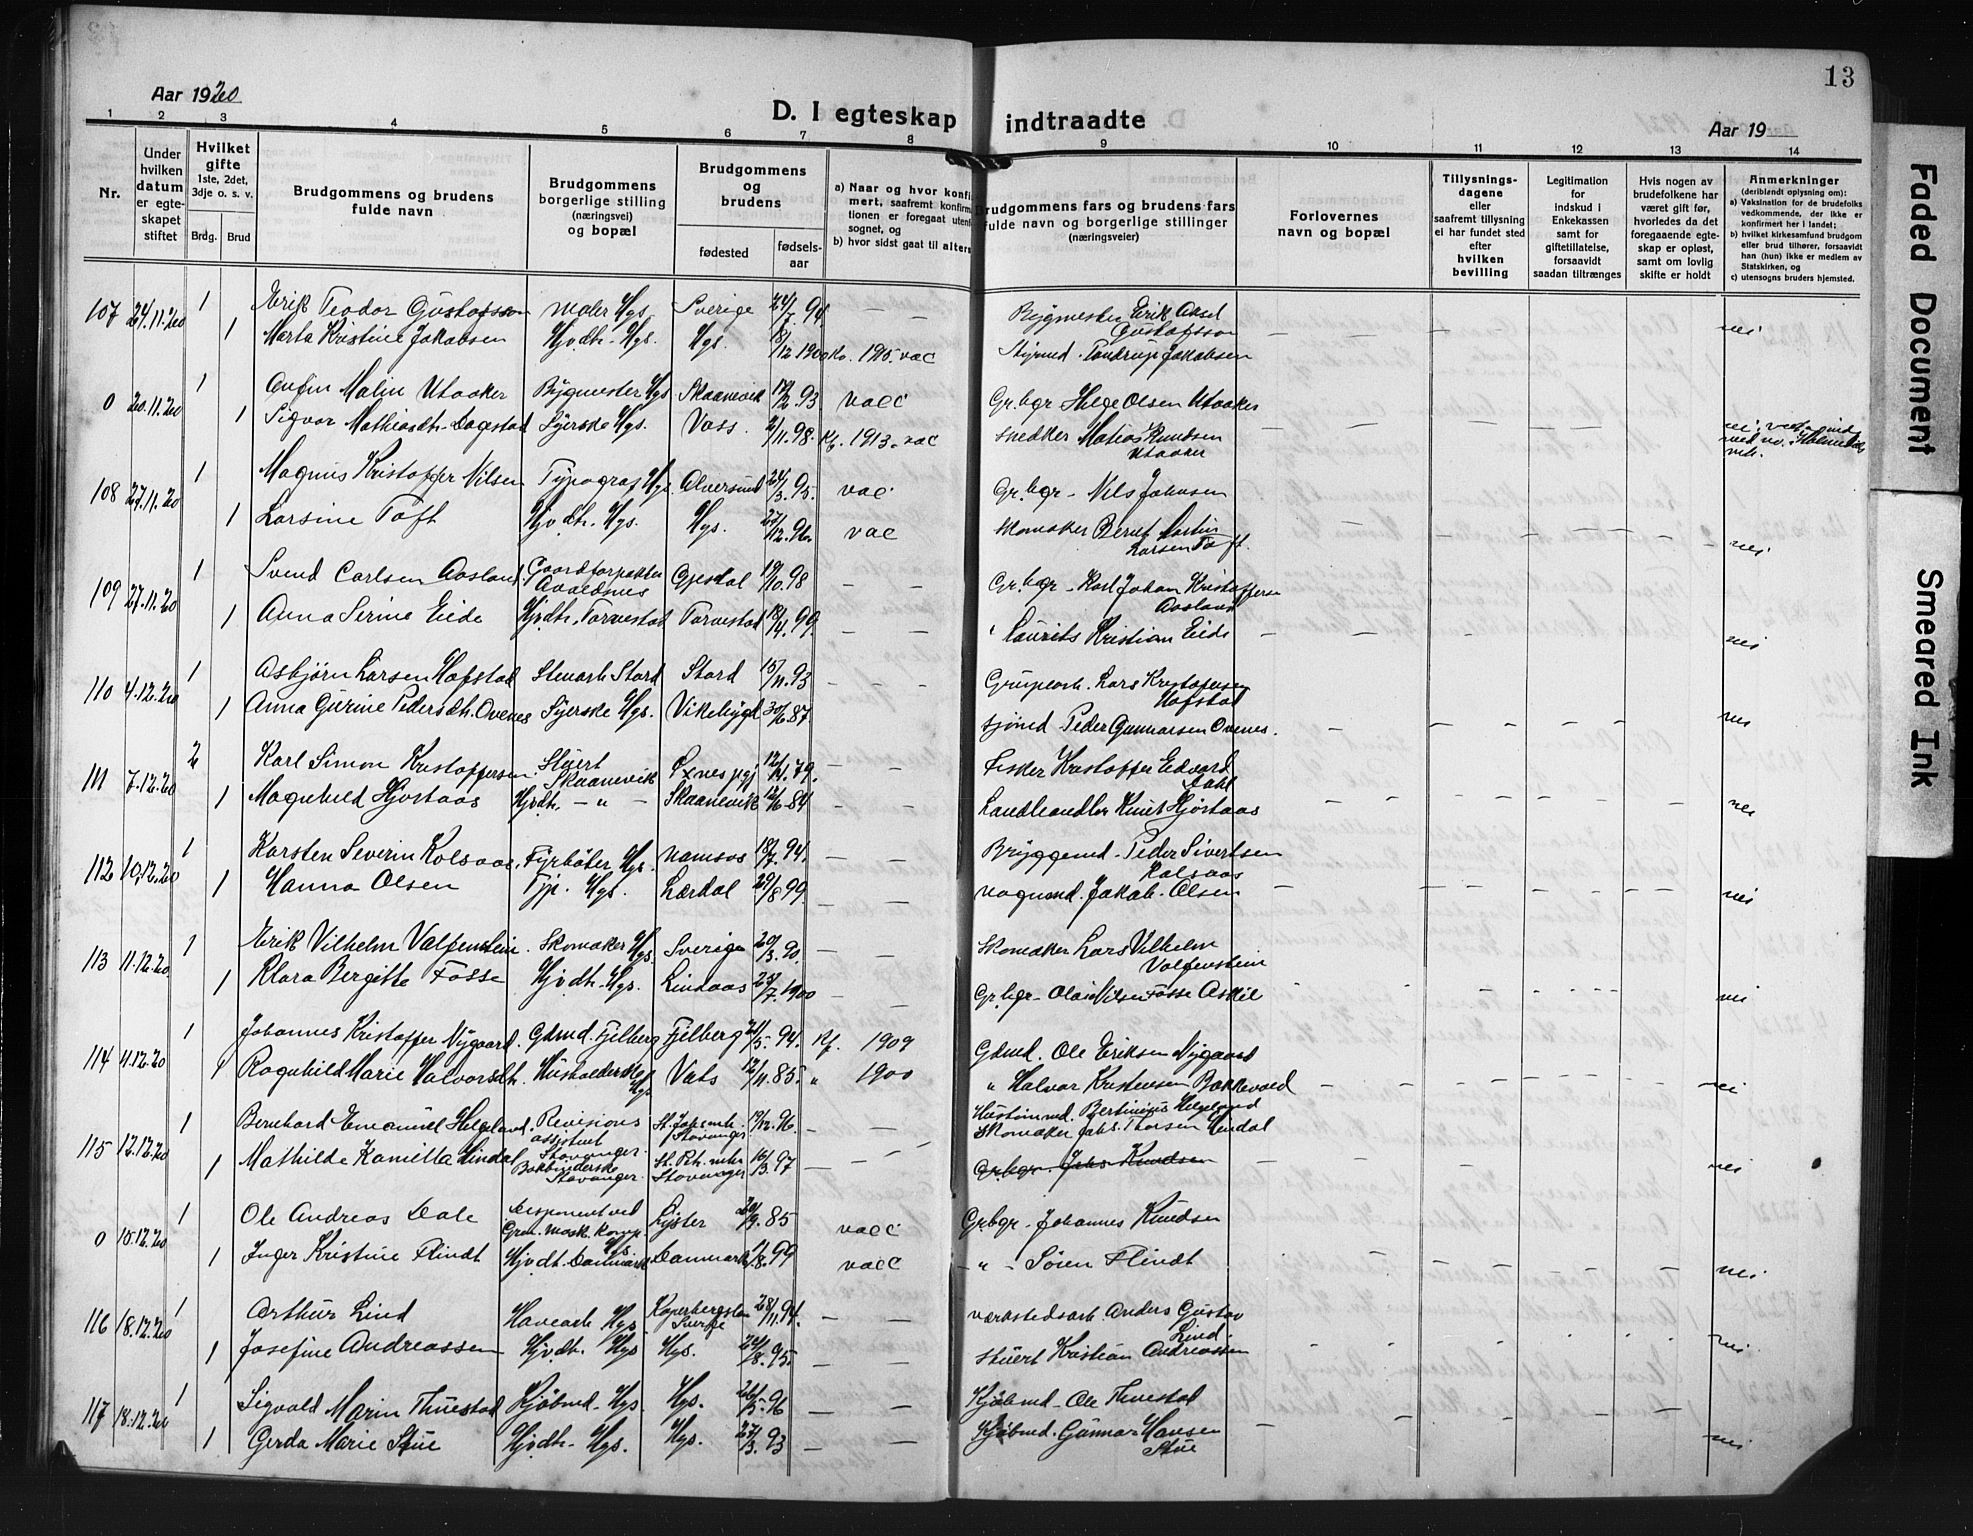 13
Aar 1920
D. I egteskap indtraadte
Aar 19
1 2 3 4 5 6 7 8 9 10 11 12 13 14
Nr.
Under hvilken datum er egteskapet stiftet
Hvilket gifte
1ste, 2det, 3dje o. s. v.
Brdg. Brud
Brudgommens og brudens fulde navn
Brudgommens borgerlige stilling (næringsvei) og bopæl
Brudgommens og brudens
fødested fødselsaar
a) Naar og hvor konfi
mert, saafremt konfirm
tionen er foregaat uten
sognet, og
b) hvor sidst gaat til alters
Brudgommens fars og brudens fars
fulde navn og borgerlige stillinger
(næringsveier)
Forlovernes navn og bopæl
Tillysningsdagene
eller
saafremt tillysning
ei har fundet sted
efter
hvilken
bevilling
Legitimation
for
indskud i
Enkekassen
samt for
giftetillatelse,
forsaavidt
saadan tiltrænges
Hvis nogen av
brudefolkene har
været gift før,
hvorledes da det
foregaaende egte-
skap er opløst,
samt om lovlig
skifte er holdt
Anmerkninger
(deriblandt oplysning om):
a) Vaksination for de brudefolks
vedkommende, der ikke er
konfirmert her i landet;
b) hvilket kirkesamfund brudgom
eller brud tilhører, forsaavidt
han (hun) ikke er medlem av
Statskirken, og
c) utensogns bruders hjemsted.
107 24.11.20 1 Erik Teodor Gustafsson Maler Hgs. Sverige 24/7. 94 — — Bygmester Erik Aksel Gustafsson
1 Marta Kristine Jakobsen Hjvdh. Hgs. Hgs. 8/12 1900 Kv. 1915. vac Styrmd. Tandrup Jakobsen nei
0 20.11.20 1 Anfin Malin Utaaker Bygmester Hgs Skaanevik 12/2. 93 vacc Gr.bgr Helge Olsen Utaaker
1 Sigvor Mathiasdtr. Dagestad Syerske Hgs. Voss. 2/11. 98. Kf. 1913. vac Snedker Matias Knudsen Utaaker nei
108 27.11.20 1 Magnus Kristoffer Nilsen Typograf Hgs. Alversund 24/3. 95. vac Gr.bgr - Nils Johnsen
1 Larsine Toft Hjvdh. Hgs. Hgs. 27/12. 96. vac Skomaker Berut Martin Larsen Toft. nei
109 27.11.20 1 Svend Carlsen Aasland Gaardforpakter Avaldsnes Gjesdal 19/10. 98 — — Gr.bgr - Karl Johan Kristoffersen Aasland
1 Anna Serine Eide Hjvdh. Torvestad Torvestad 12/4. 99. — — " Laurits Kristian Eide nei
110 4.12.20 1 Asbjørn Larsen Hofstad Stenarb. Stord Stord 15/11. 93 — — Grubearb. Lars Kristofersen Hofstad
1 Anna Gurine Pedersdtr. Ovenes Syerske Hgs. Vikebygd 30/6. 87. Sjømd Peder Gunnarsen Ovenes. nei
111 7.12.20 2 Karl Simon Kristoffersen Stuert Skaanevik Øxnes pgj 12/12. 79. — — Fisker Kristoffer Edvard Dahl
1 Magnhild Hjortaas Hjvdh. — " — Skaanevik 12/6. 84 — — Landhandler Knut Hjortaas nei
112 10.12.20 1 Karsten Severin Kolsaas. Fyrbøter Hgs. Namsos 18/7. 94. — — Bryggemd. Peder Sivertsen Kolsaas
1 Hanna Olsen Tjp. Hgs. Lærdal 29/8 99 — — Vognmd. Jakob Olsen nei
113 11.12.20 1 Erik Vilhelm Valfenstein. Skomaker Hgs. Sverige 20/3. 90. — — Skomaker Lars Vilhelm Valfenstein
1 Klara Bergitte Fosse Hjvdh. Hgs. Lindaas 25/7. 1900 — — Gr.bgr - Olai Nilsen Fosse Askil nei
114 11.12.20 1 Johannes Kristoffer Nygaard. Gdmd. Fjelberg Fjelberg 21/5. 94. Kf. 1909 Gdmd. Ole Eriksen Nygaard
1 Ragnhild Marie Halvorsdtr. Husholderske Hgs Vats 12/11. 85. " 1900 " Halvor Kristensen Bakkevold nei
115 12.12.20 1 Bernhard Emanuel Helgeland. Revisions assistent Stavanger. St. Johs. mh. Stavanger 19/12. 96. — — Hustømmd. Bertinius Helgeland
1 Mathilde Kamilla Lindal Bokbinderske Stavanger. St. Petri mh. Stavanger 16/3. 97 — — Skomaker Johs. Thorsen Lindal
Gr.bgr. Johs. Knudsen nei
0 15.12.20 1 Ole Andreas Dale Disponent ved Gren. Mosk. Komp. Hgs. Lyster 20/9. 85 vacc Gr.bgr - Johannes Knudsen
1 Inger Kristine Flindt Hjvdt. Danmark Danmark 1/8. 99 vacc — " — Søren Flindt nei
116 18.12.20 1 Arthur Lind Havearb Hgs Koperbergslan Sverge 28/11. 94. — — Værkstedsarb. Anders Gustav Lind.
1 Josefine Andreassen Hjvdh. Hgs Hgs. 24/8. 95. — — Stuert Kristian Andreassen nei
117 18.12.20 1 Sigvald Marin Thuestad Kjøbmd. Hgs. Hgs. 26/5. 96 Kjøbmd - Ole Thuestad
1 Gerda Marie Stue Hjvdh. Hgs. Hgs. 27/3. 93 — — Kjøbmd. Gunnar Hansen Stue nei
Faded Document
Smeared Ink